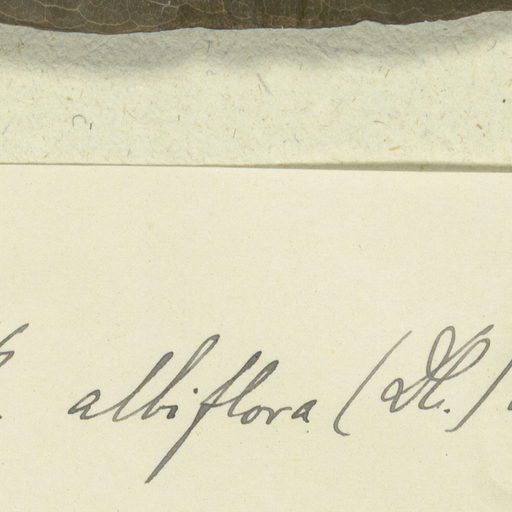 albiflora (Bl.)